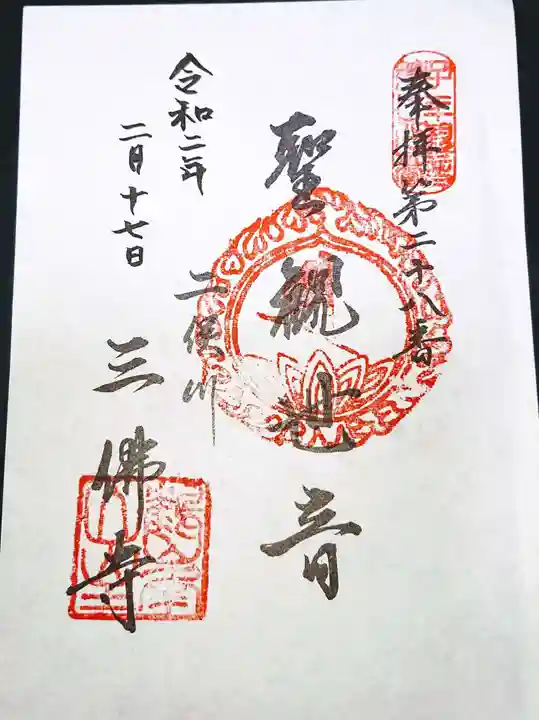 奉拝第二十八番
聖観世音
二俣川
令和二年
二月十七日
三佛寺